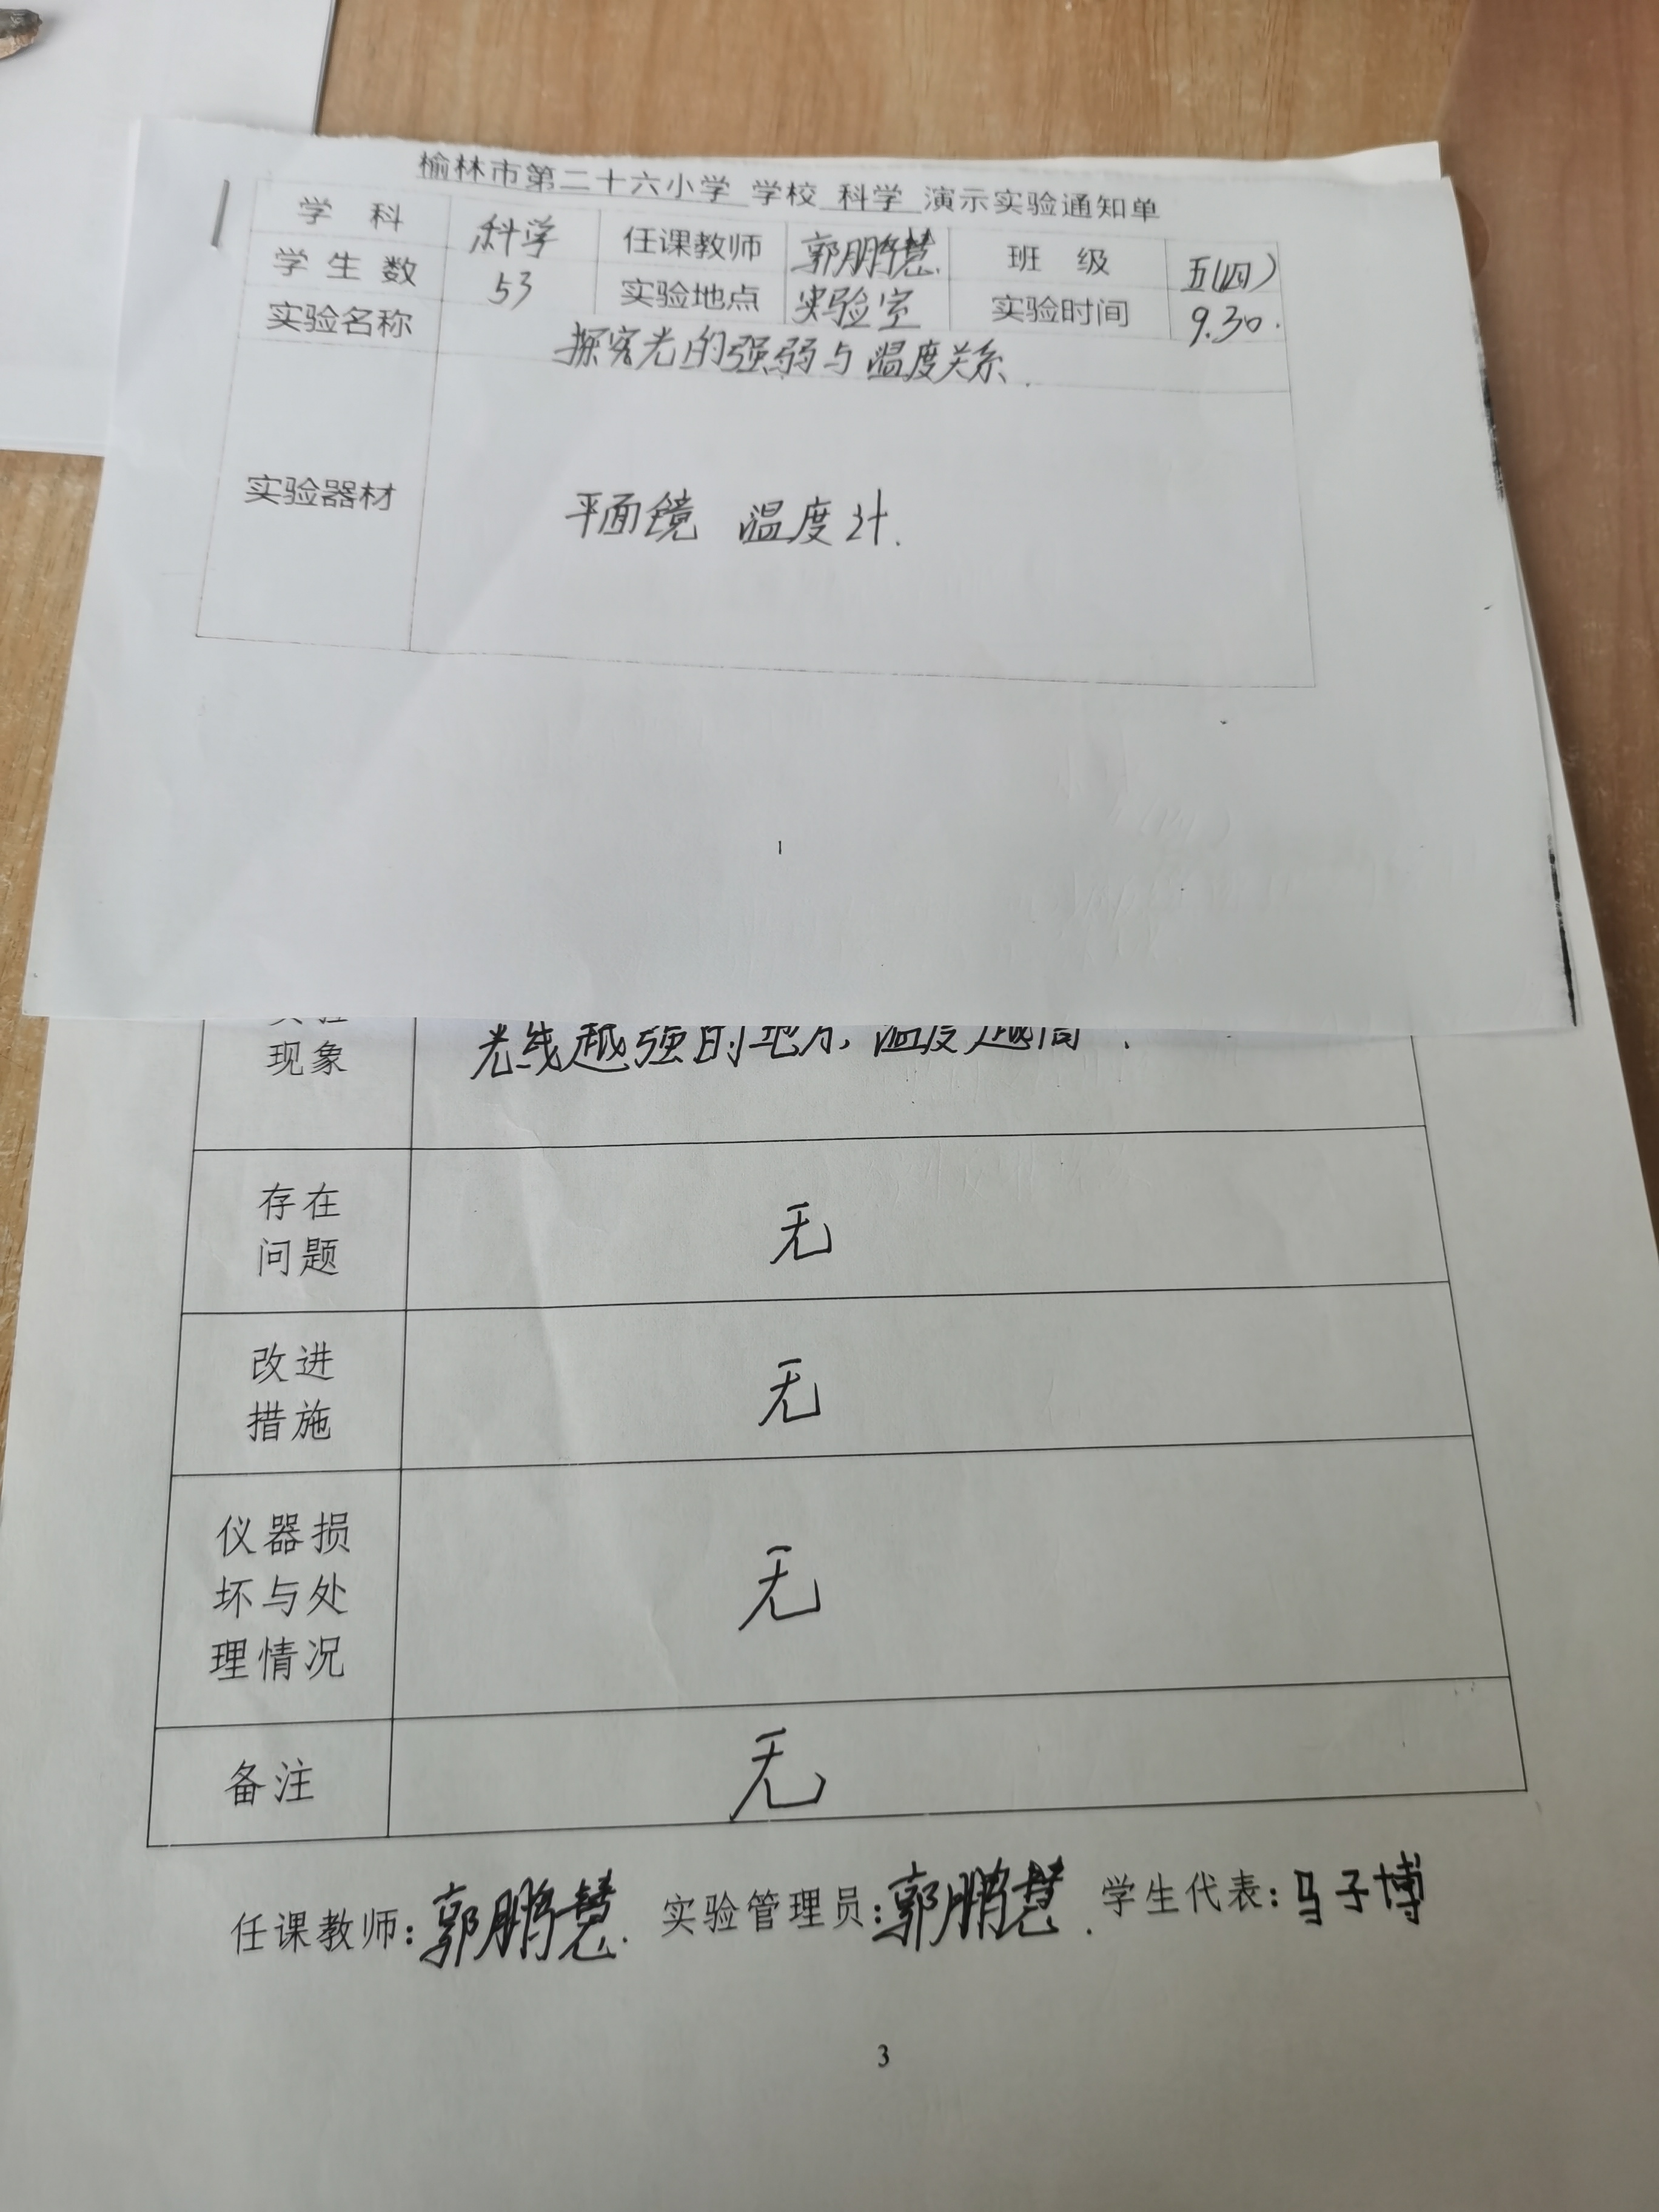 榆林市第二十六小学 学校 科学 演示实验通知单
学 科 科学 任课教师 郭鹏慧 班 级 五(四)
学 生 数 53 实验地点 实验室 实验时间 9.30.
实验名称 探究光的强弱与温度关系.
实验器材 平面镜 温度计.
1
实验
现象 光线越强的地方,温度越高.
存在
问题 无
改进
措施 无
仪器损
坏与处
理情况 无
备注 无
任课教师:郭鹏慧. 实验管理员:郭鹏慧. 学生代表:马子博
3